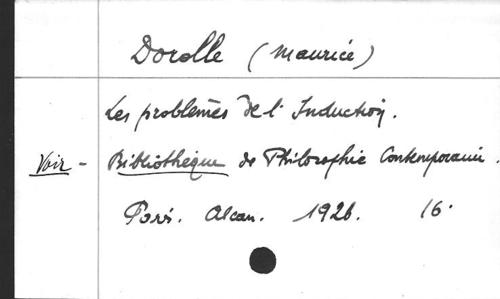 Dorolle (Maurice)
Les problèmes de l'Induction.
Voir - Bibliothèque de Philosophie Contemporaine.
Paris. Alcan. 1926. 16°